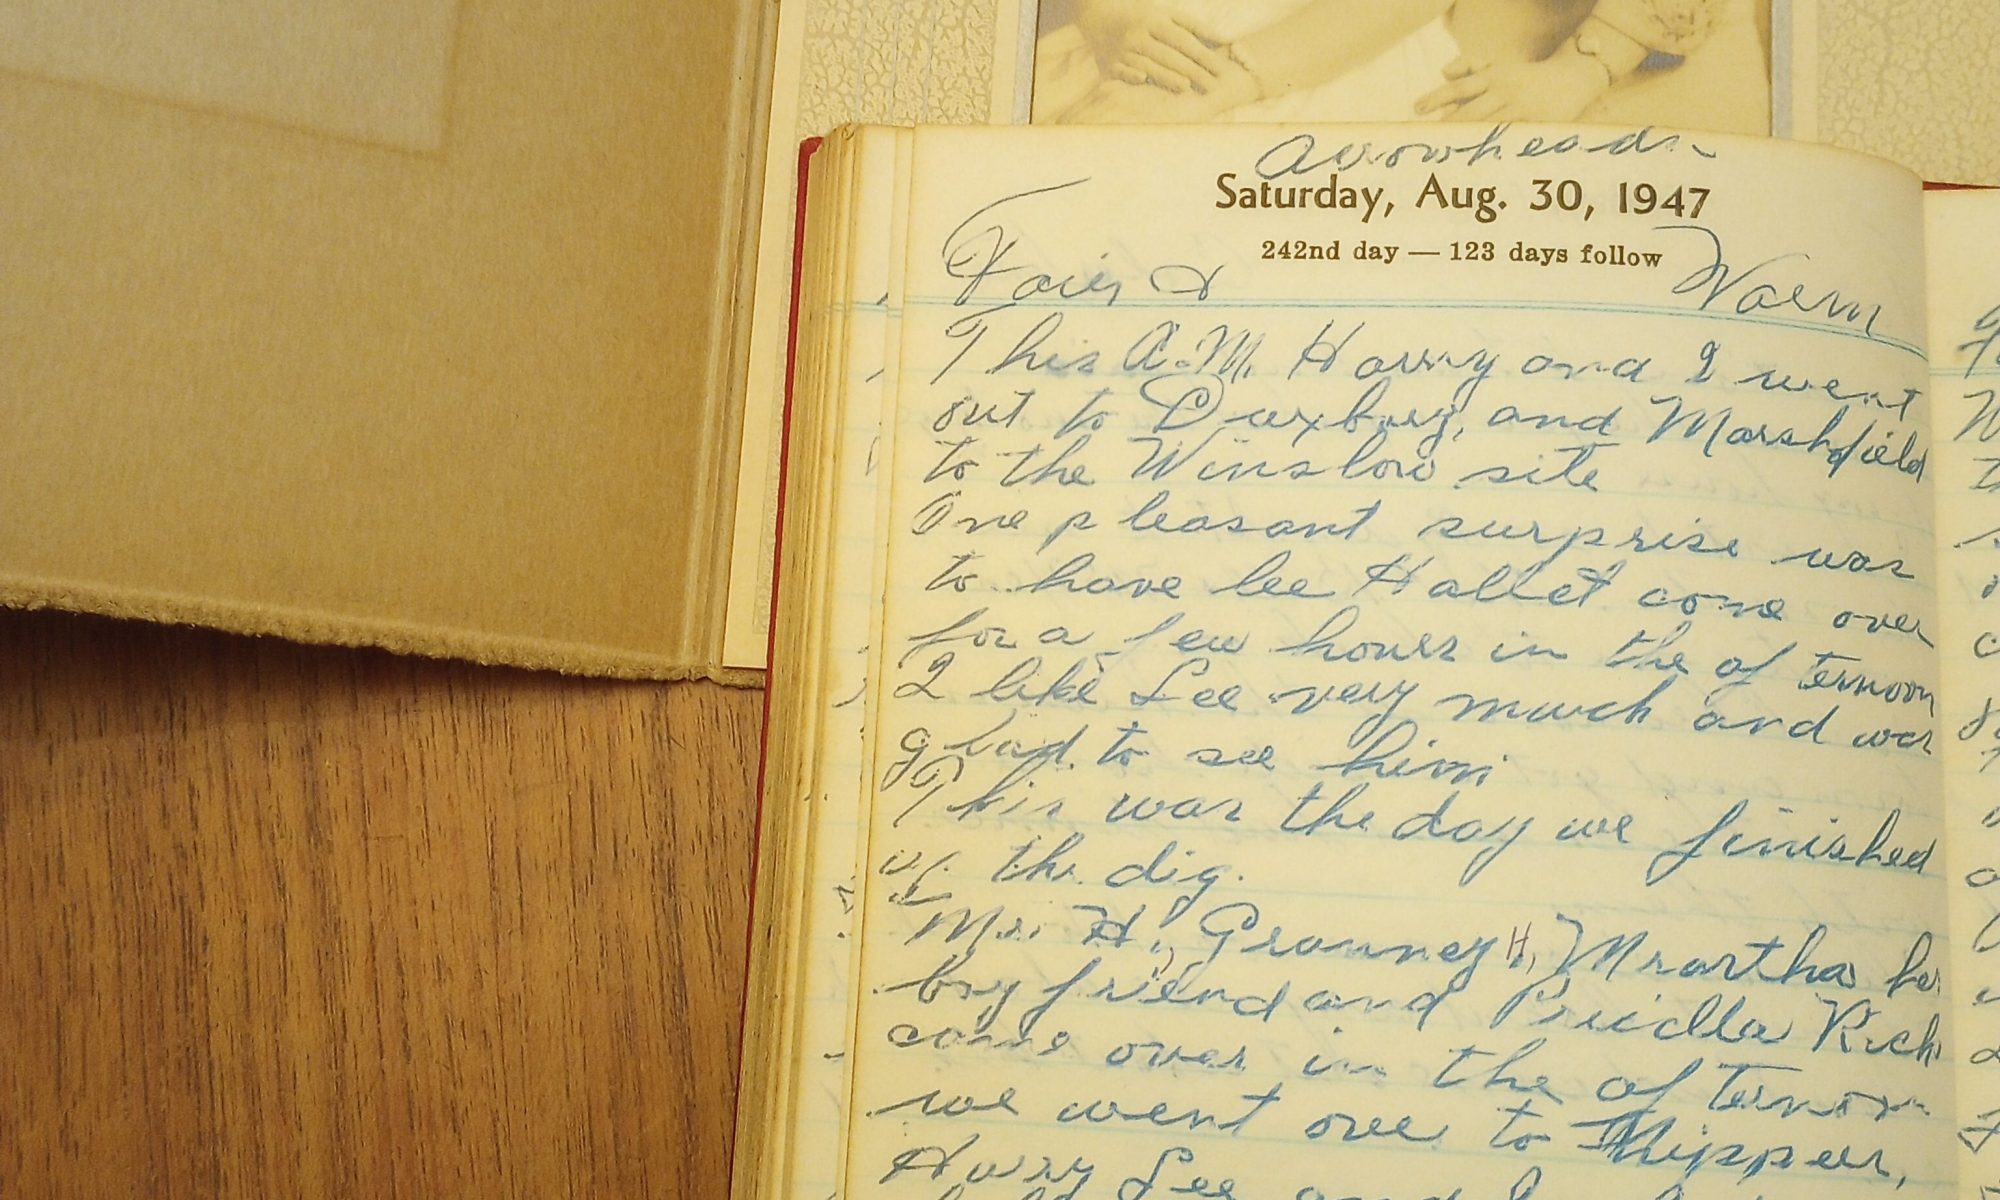 Arrowheads
Saturday, Aug. 30, 1947
242nd day — 123 days follow
Fair & Warm
This A.M. Harry and I went
out to Duxbury, and Marshfield
to the Winslow site
One pleasant surprise was
to have Lee Hallet come over
for a few hours in the afternoon
I like Lee very much and was
glad to see him
This was the day we finished
up the dig.
Mr. H., Granney H, Mrartha her
boy friend and Pricilla Rich
come over in the afternoon
we went over to
Harry Lee and